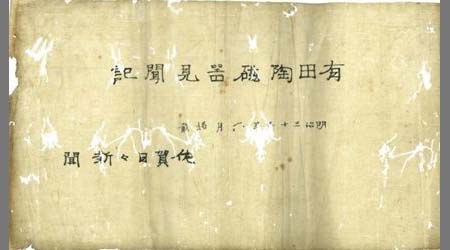 有田陶磁噐見聞記
明治三十 年六月
佐賀日々新聞